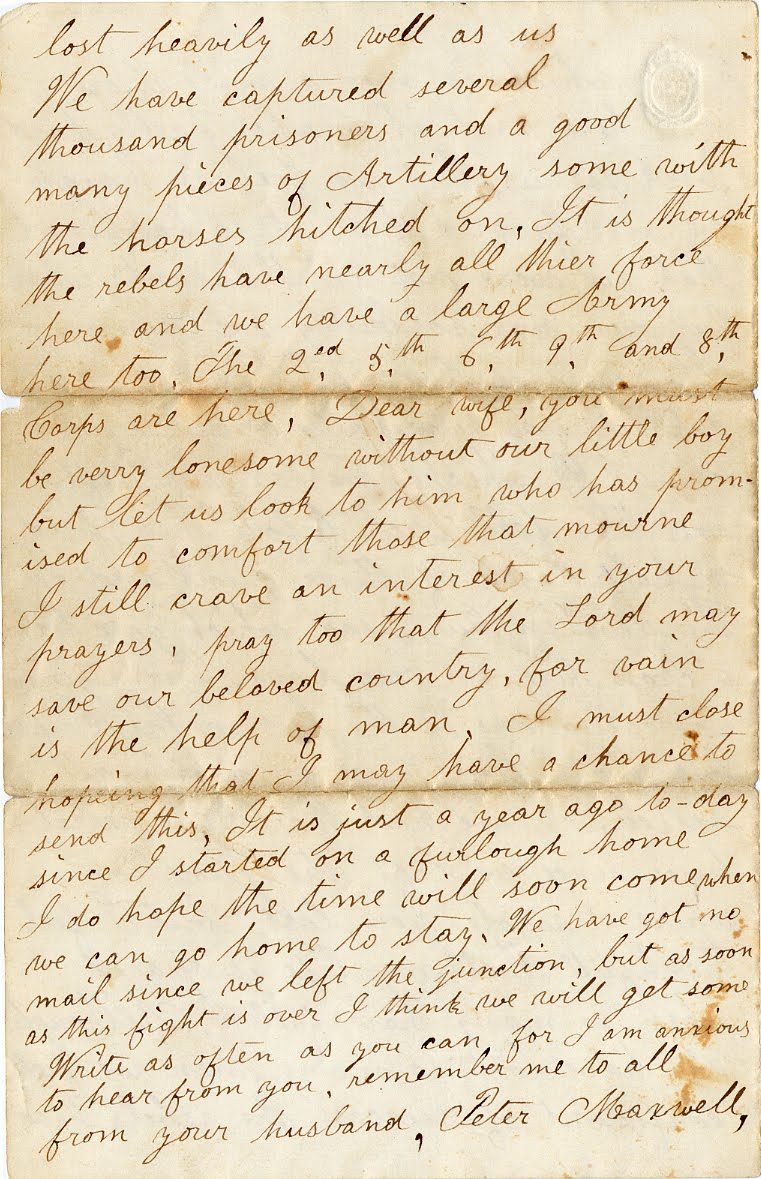 lost heavily as well as us
We have captured several
thousand prisoners and a good
many pieces of Artillery some with
the horses hitched on, It is thought
the rebels have nearly all thier force
here and we have a large Army
here too. The 2ed, 5,th 6,th 9,th and 8,th
Corps are here, Dear wife, you must
be verry lonesome without our little boy
but let us look to him who has prom-
ised to comfort those that mourne
I still crave an interest in your
prayers, pray too that the Lord may
save our beloved country, for vain
is the help of man, I must close
hopeing that I may have a chance to
send this, It is just a year ago to-day
since I started on a furlough home
I do hope the time will soon come when
we can go home to stay, We have got no
mail since we left the junction, but as soon
as this fight is over I think we will get some
Write as often as you can, for I am anxious
to hear from you, remember me to all
from your husband, Peter Maxwell,